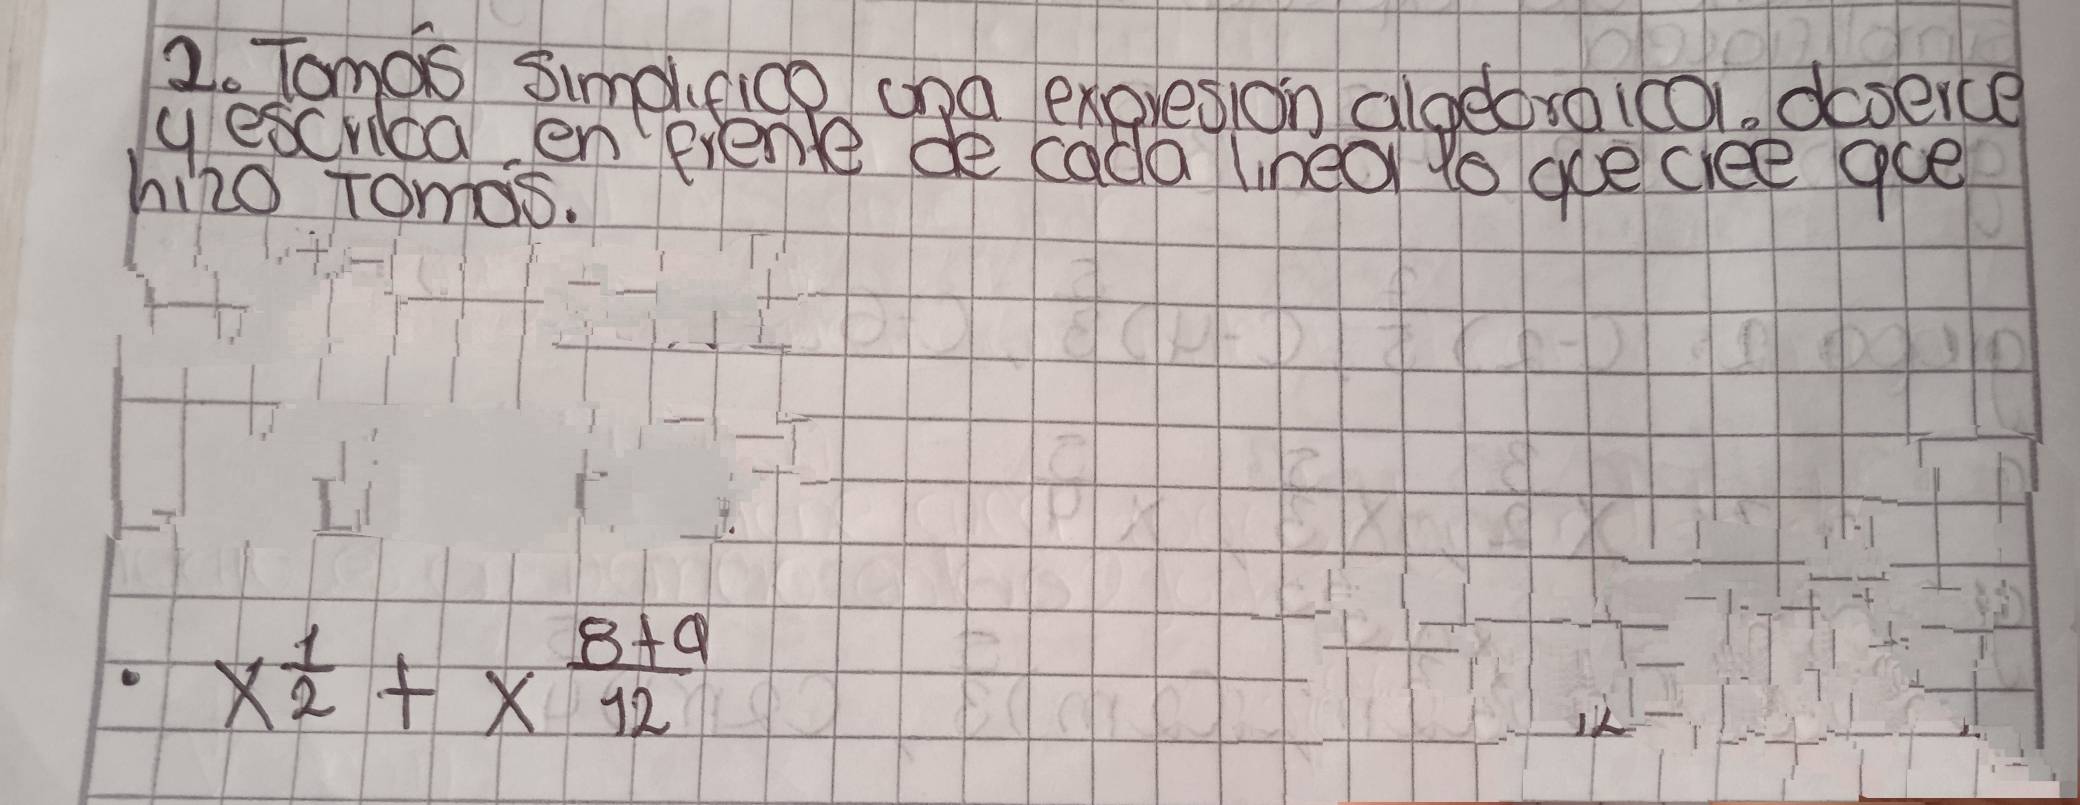 2. Tomás Simplifico una expresión algebraica. observe
y escriba en frente de cada linea lo que cree que
hizo Tomás.
• x^{\frac{1}{2}} + x^{\frac{8+9}{12}}